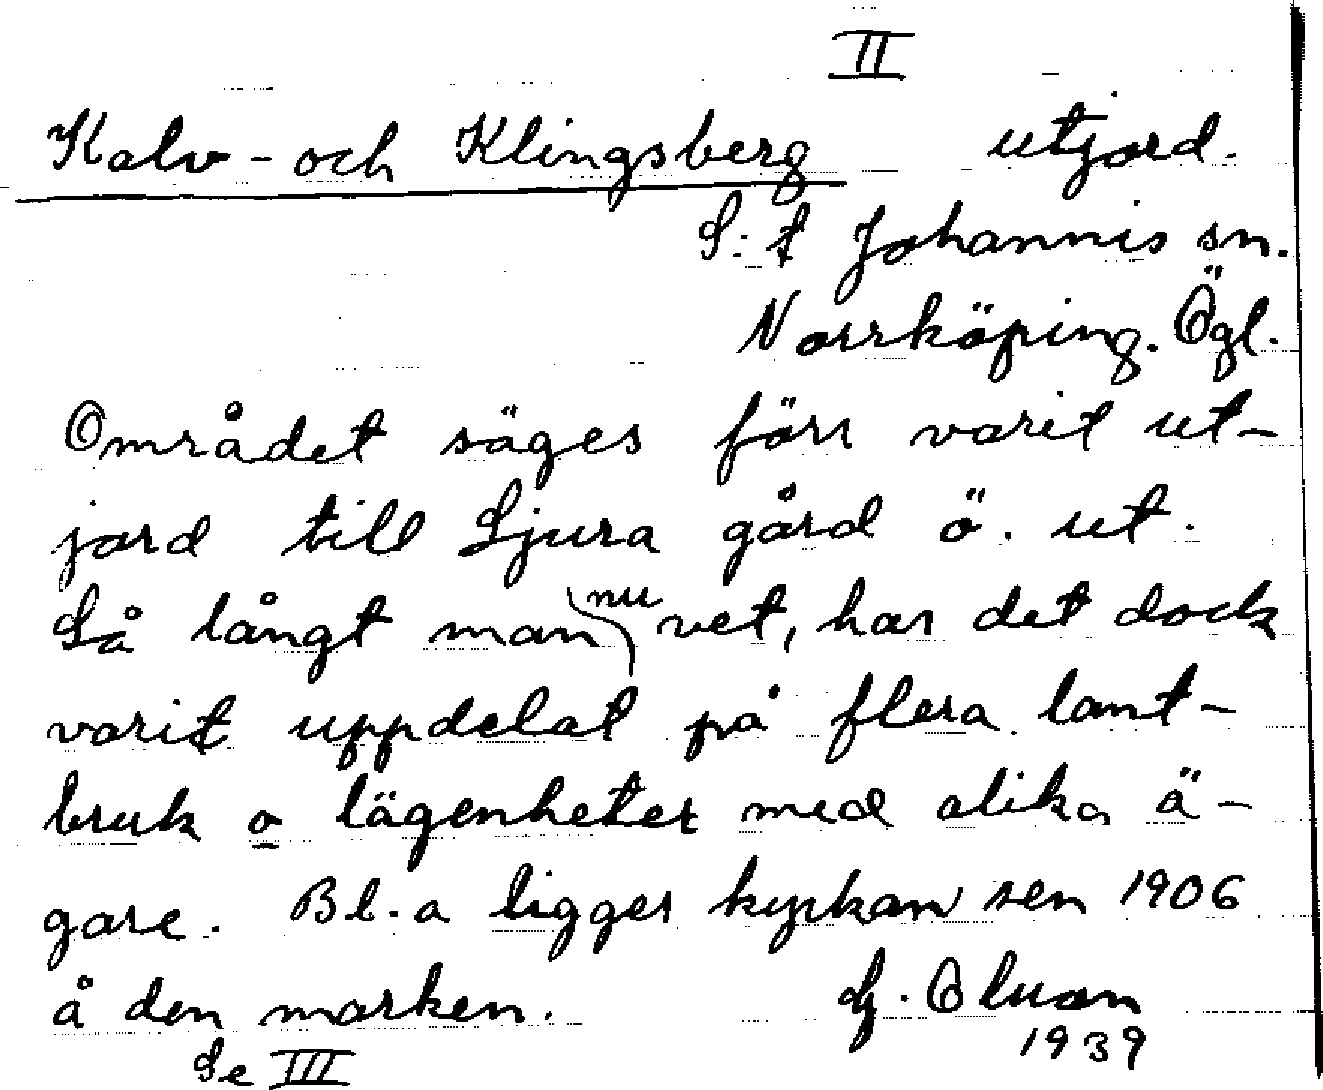 II
Kalv- och Klingsberg utjord.
S:t Johannis sn.
Norrköping. Ögl.
Området säges förr varit ut-
jord till Ljura gård ö. ut.
Så långt man nu vet, har det dock
varit uppdelat på flera lant-
bruk o lägenheter med olika ä-
gare. Bl.a ligger kyrkan sen 1906
å den marken. G. Olson
1939
Se III